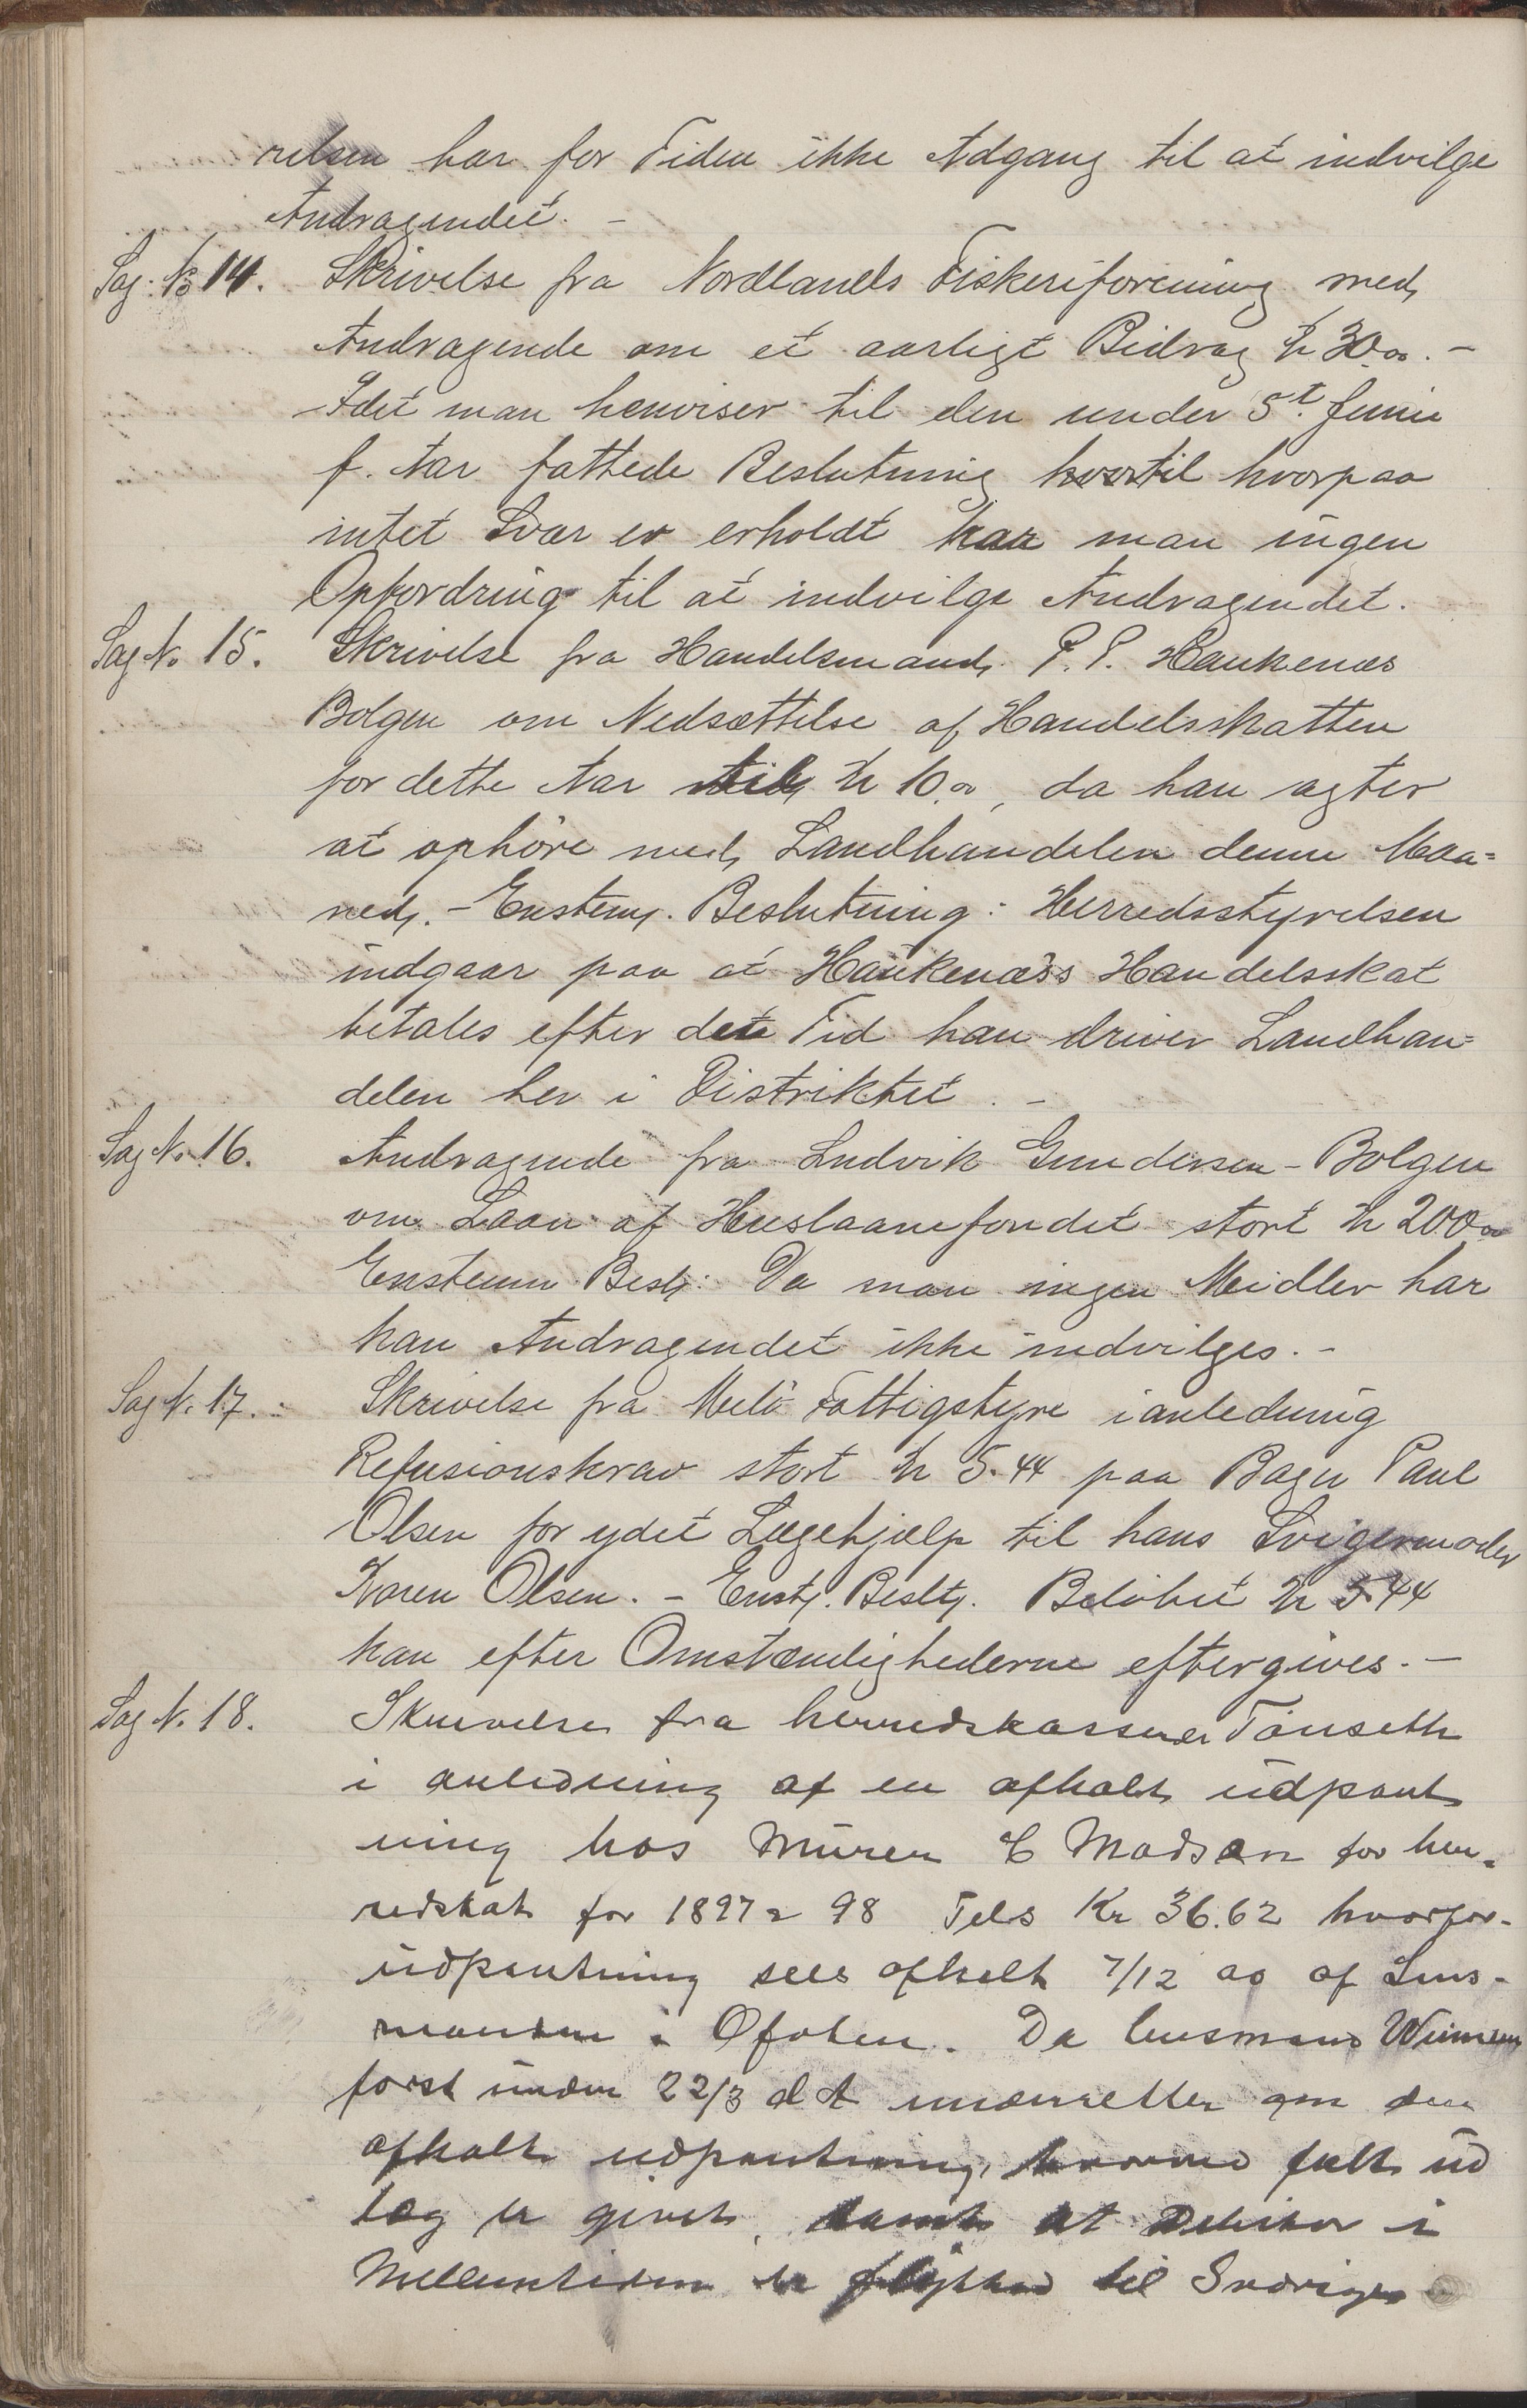 relsen har for Tiden ikke Adgang til at indvilge
Andragendet. -
Sag. No 14. Skrivelse fra Nordlands Fiskeriforening med
Andragende om et aarligt Bidrag Kr 30.00. -
Idet man henviser til den under 5t. Juni
f. Aar fattede Beslutning hvortil hvorpaa
intet Svar er erholdt har man ingen
Opfordring til at indvilge Andragendet.
Sag No 15. Skrivelse fra Handelsmand P. P. Haukenæs
Bolgen om Nedsættelse af Handelsskatten
for dette Aar til Kr 10.00, da han agter
at ophöre med Landhandelen denne Maa=
ned. - Enstemg. Beslutning: Herredsstyrelsen
indgaar paa at Haukenæs's Handelsskat
betales efter den Tid han driver Landhan=
delen her i Distriktet. -
Sag No 16. Andragende fra Ludvik Gundersen - Bolgen
om Laan af Huslaanefondet stort Kr 200.00
Enstemm Besl: Da man ingen Midler har
kan Andragendet ikke indvilges. -
Sag N. 17. Skrivelse fra Melö Fattigstyre ianledning
Refusionskrav stort Kr 5.44 paa Bager Paul
Olsen for ydet Lægehjælp til hans Svigermoder
Karen Olsen. - Enst. Beslt. Belöbet Kr 5.44
kan efter Omstændighederne eftergives. -
Sag N. 18. Skrivelse fra herredskasserer Tönseth
i anledning af en afholdt udpant
ning hos Murer C Madsen for her-
redskat for 1897 & 98 Tels Kr 36.62 hvorfor
udpantning sees afholdt 7/12 00 af Lens-
manden i Ofoten. Da lensmand
först under 22/3 d A underretter om den
afholdte udpantning, hvorved fuldt ud
læg er givet, samt at Debitor i
Mellemtiden er flyttet til Sverige